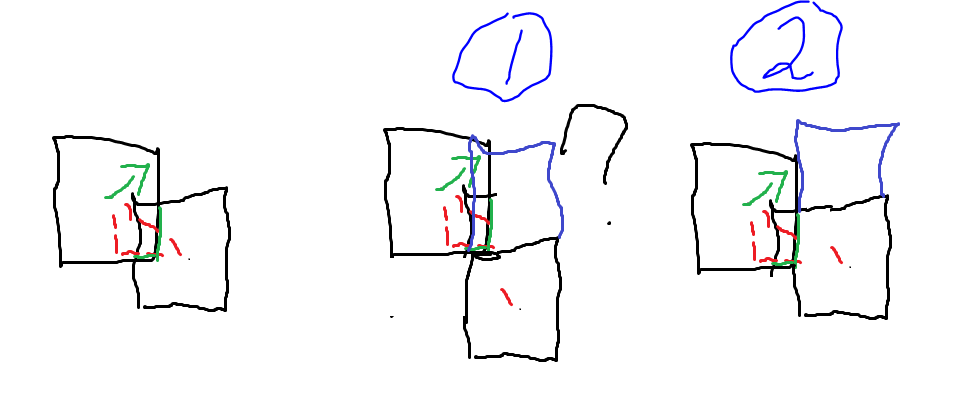 1
2
?